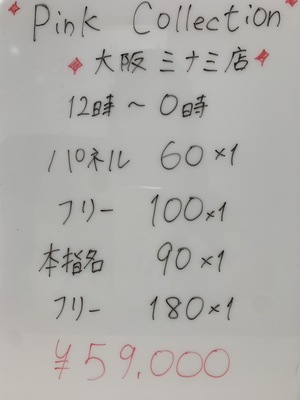 Pink Collection
大阪ミナミ店
12時～0時
パネル 60×1
フリー 100×1
本指名 90×1
フリー 180×1
¥59,000